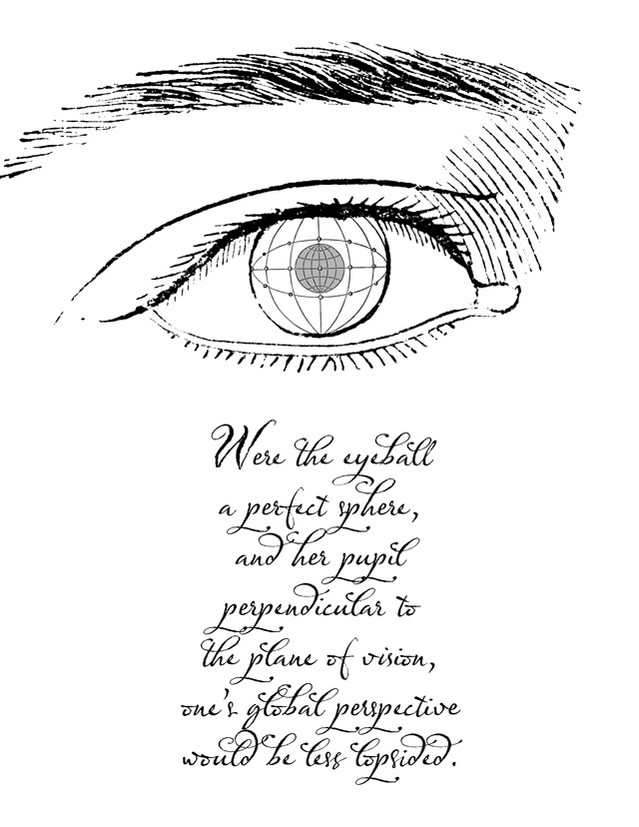 Were the eyeball
a perfect sphere,
and her pupil
perpendicular to
the plane of vision,
one's global perspective
would be less lopsided.